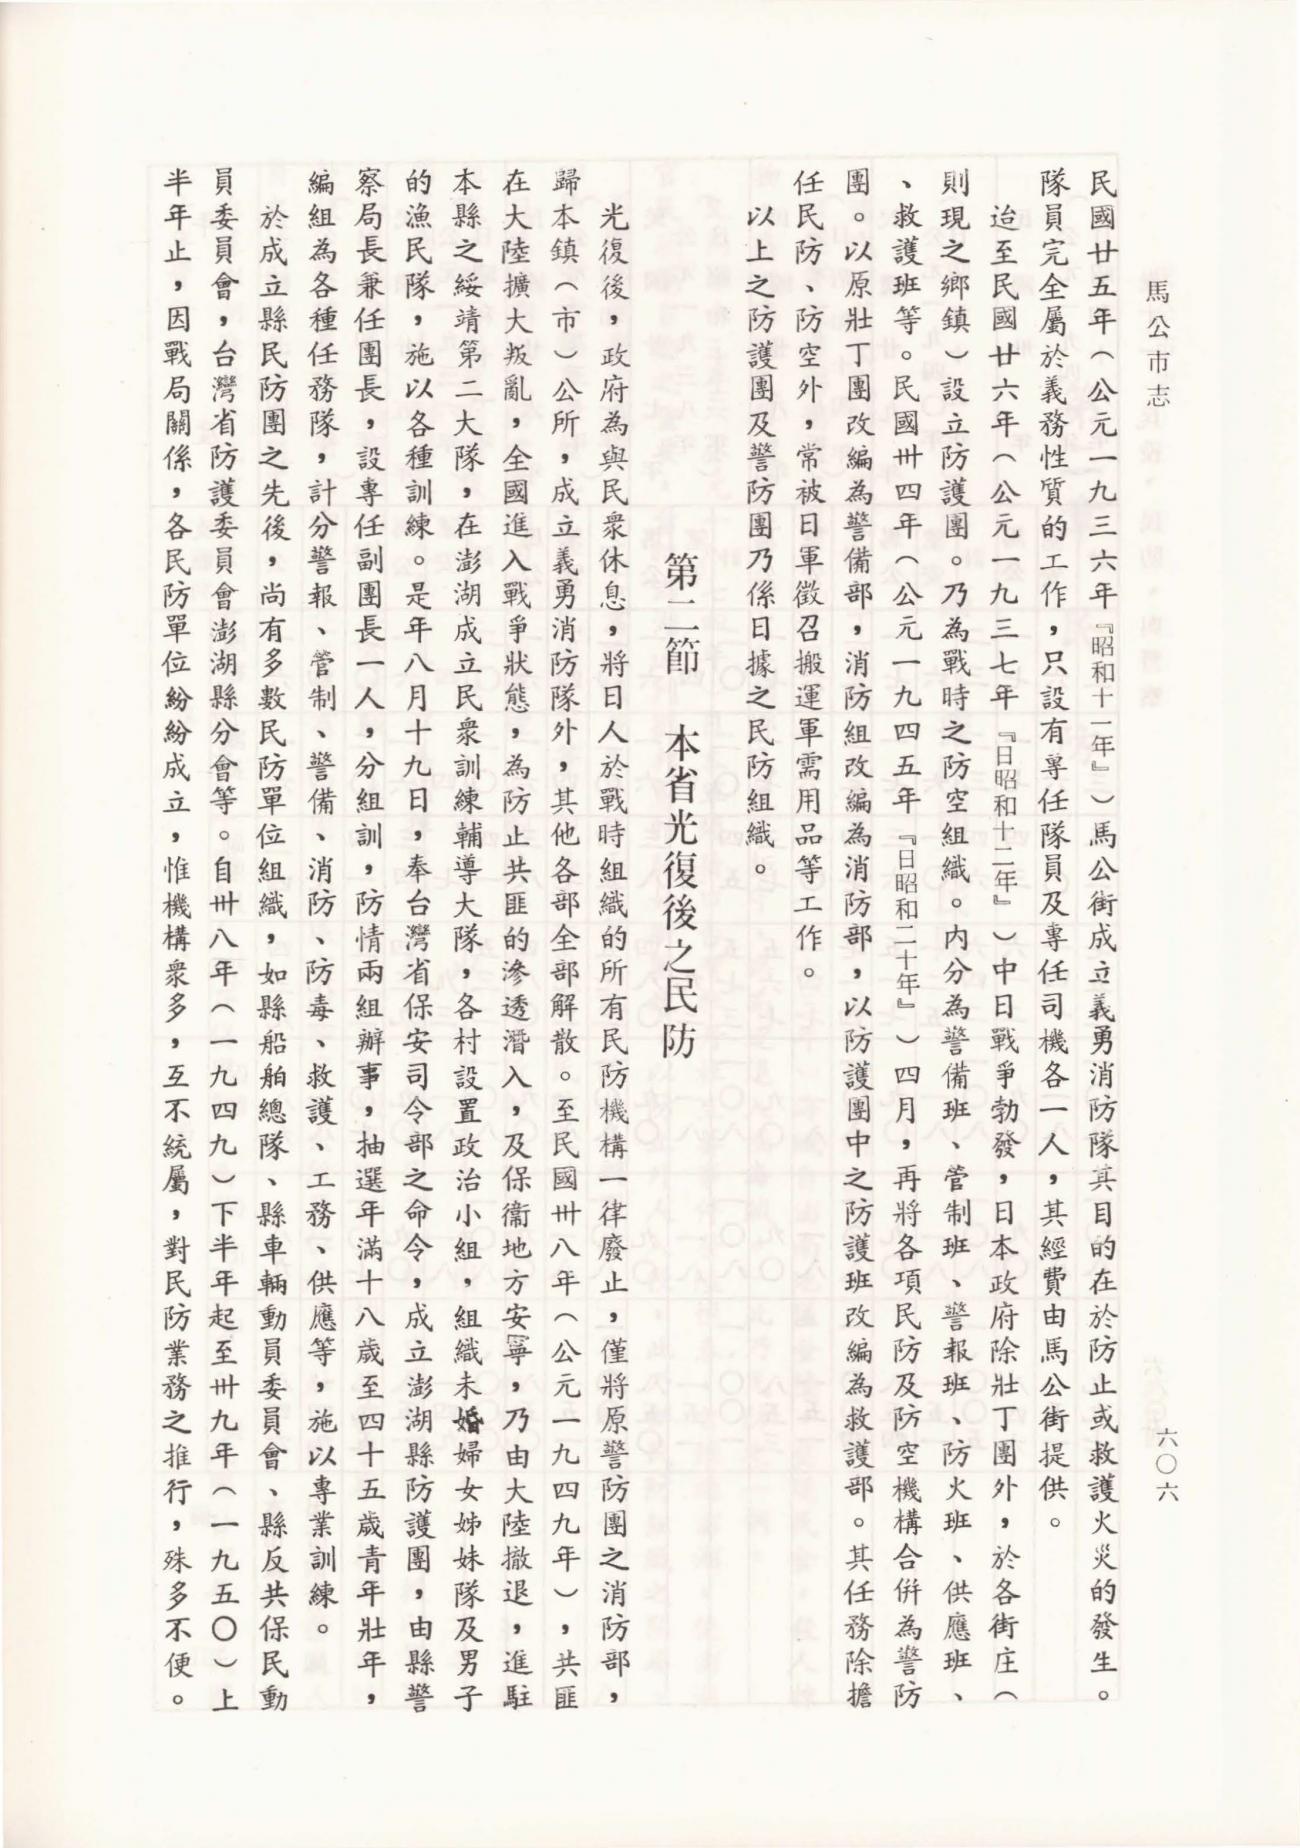 馬公市志
六〇六
民國廿五年（公元一九三六年『昭和十一年』）馬公街成立義勇消防隊其目的在於防止或救護火災的發生。
隊員完全屬於義務性質的工作，只設有專任隊員及專任司機各一人，其經費由馬公街提供。
迨至民國廿六年（公元一九三七年『日昭和十二年』）中日戰爭勃發，日本政府除壯丁團外，於各街庄（
則現之鄉鎮）設立防護團。乃為戰時之防空組織。內分為警備班、管制班、警報班、防火班、供應班、
、救護班等。民國卅四年（公元一九四五年『日昭和二十年』）四月，再將各項民防及防空機構合併為警防
團。以原壯丁團改編為警備部，消防組改編為消防部，以防護團中之防護班改編為救護部。其任務除擔
任民防、防空外，常被日軍徵召搬運軍需用品等工作。
以上之防護團及警防團乃係日據之民防組織。
第二節　本省光復後之民防
光復後，政府為與民衆休息，將日人於戰時組織的所有民防機構一律廢止，僅將原警防團之消防部，
歸本鎮（市）公所，成立義勇消防隊外，其他各部全部解散。至民國卅八年（公元一九四九年），共匪
在大陸擴大叛亂，全國進入戰爭狀態，為防止共匪的滲透潛入，及保衞地方安寧，乃由大陸撤退，進駐
本縣之綏靖第二大隊，在澎湖成立民衆訓練輔導大隊，各村設置政治小組，組織未婚婦女姊妹隊及男子
的漁民隊，施以各種訓練。是年八月十九日，奉台灣省保安司令部之命令，成立澎湖縣防護團，由縣警
察局長兼任團長，設專任副團長一人，分組訓，防情兩組辦事，抽選年滿十八歲至四十五歲青年壯年，
編組為各種任務隊，計分警報、管制、警備、消防、防毒、救護、工務、供應等，施以專業訓練。
於成立縣民防團之先後，尚有多數民防單位組織，如縣船舶總隊、縣車輛動員委員會、縣反共保民動
員委員會，台灣省防護委員會澎湖縣分會等。自卅八年（一九四九）下半年起至卅九年（一九五〇）上
半年止，因戰局關係，各民防單位紛紛成立，惟機構衆多，互不統屬，對民防業務之推行，殊多不便。